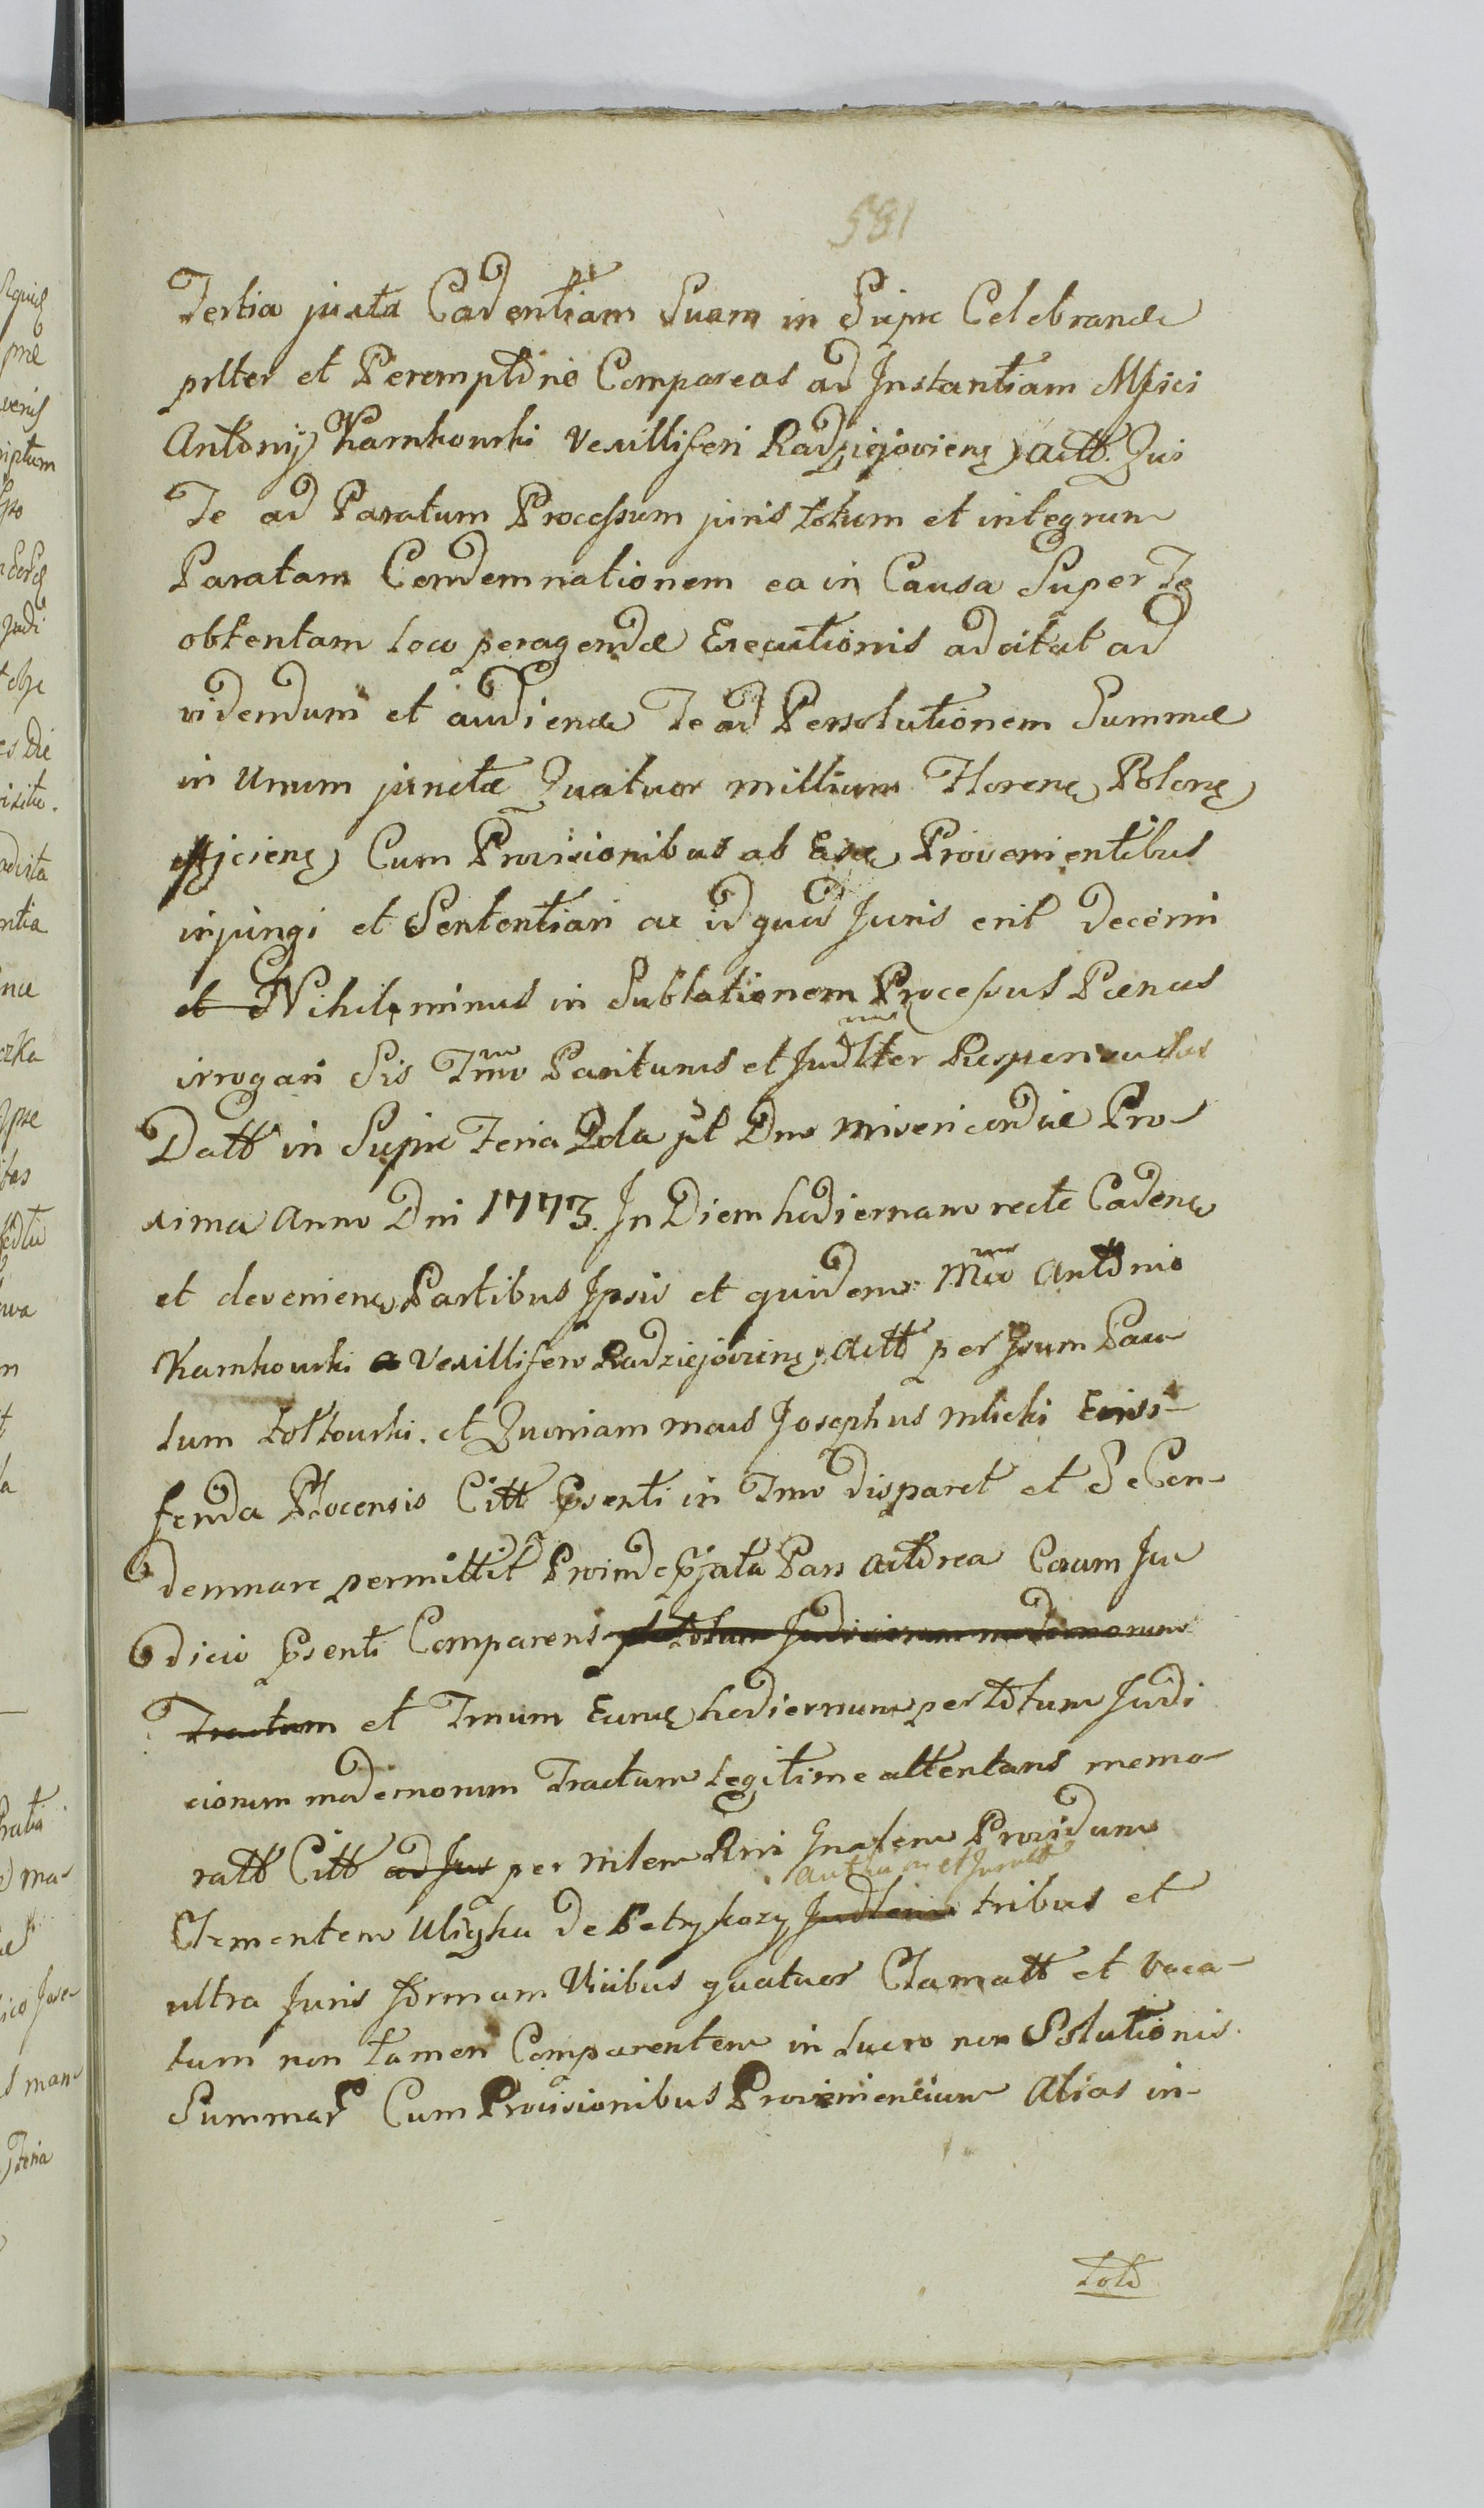 581
Tertia juxta Cadentiam Suam in Sierpc Celebranda
prlter et Peremptorie Compareas ad Instantiam Mfici
Antonij Karnkowski Vexilliferi Radziejoviens Actt. Qui
Te ad Paratum Processum juris totum et integrum
Paratam Condemnationem ea in Causa Super Te
obtentam loco peragendæ Executionis adcitat ad
videndum et audiend Te ad Persolutionem Summæ
in Unum junctæ Quatuor millium Floren Polon
Cum Provisionibus ab Easd Provenientibus
injungi et Sententiari ac id quid Juris erit decerni
et Nihilominus in Sublationem Processus Pænas
irrogari Sis Tmo Pariturus et Judlter Responsurus
Datt in Sierpc Feria 2da pt Dnc misericordiæ Pro-
xima Anno Dni 1773. In Diem hodiernam recte Caden
et devenien Partibus Ipsis et quidem Mco Antonio
Karnkowski a Vexillifero Radziejoviens Actt per Gsum Pau
lum Zoltowski. et Quoniam mcus Josephus mlicki Ensi-
fenda Plocensis Citt Psenti in Tmo disparet et Se Con-
demnare permittit Proinde Pjata Pars Actorea Coram Ju
dicio Psenti Comparens pt totum Judiciorum modernorum
Tractum et Tmum Eund hodiernum per totum Judi
ciorum modernorum Tractum legitime attentans memo-
ratt Citt ad Jus per mlem Rni Gnalem Providum
authen et Juratt
Clementem Uligka de Petrykozy Judlem tribus et
ultra Juris formam Vicibus quatuor Clamatt et voca-
tum non tamen Comparentem in lucro non Solutionis
Summar Cum Provisionibus Proveniencium Alias in-
toto